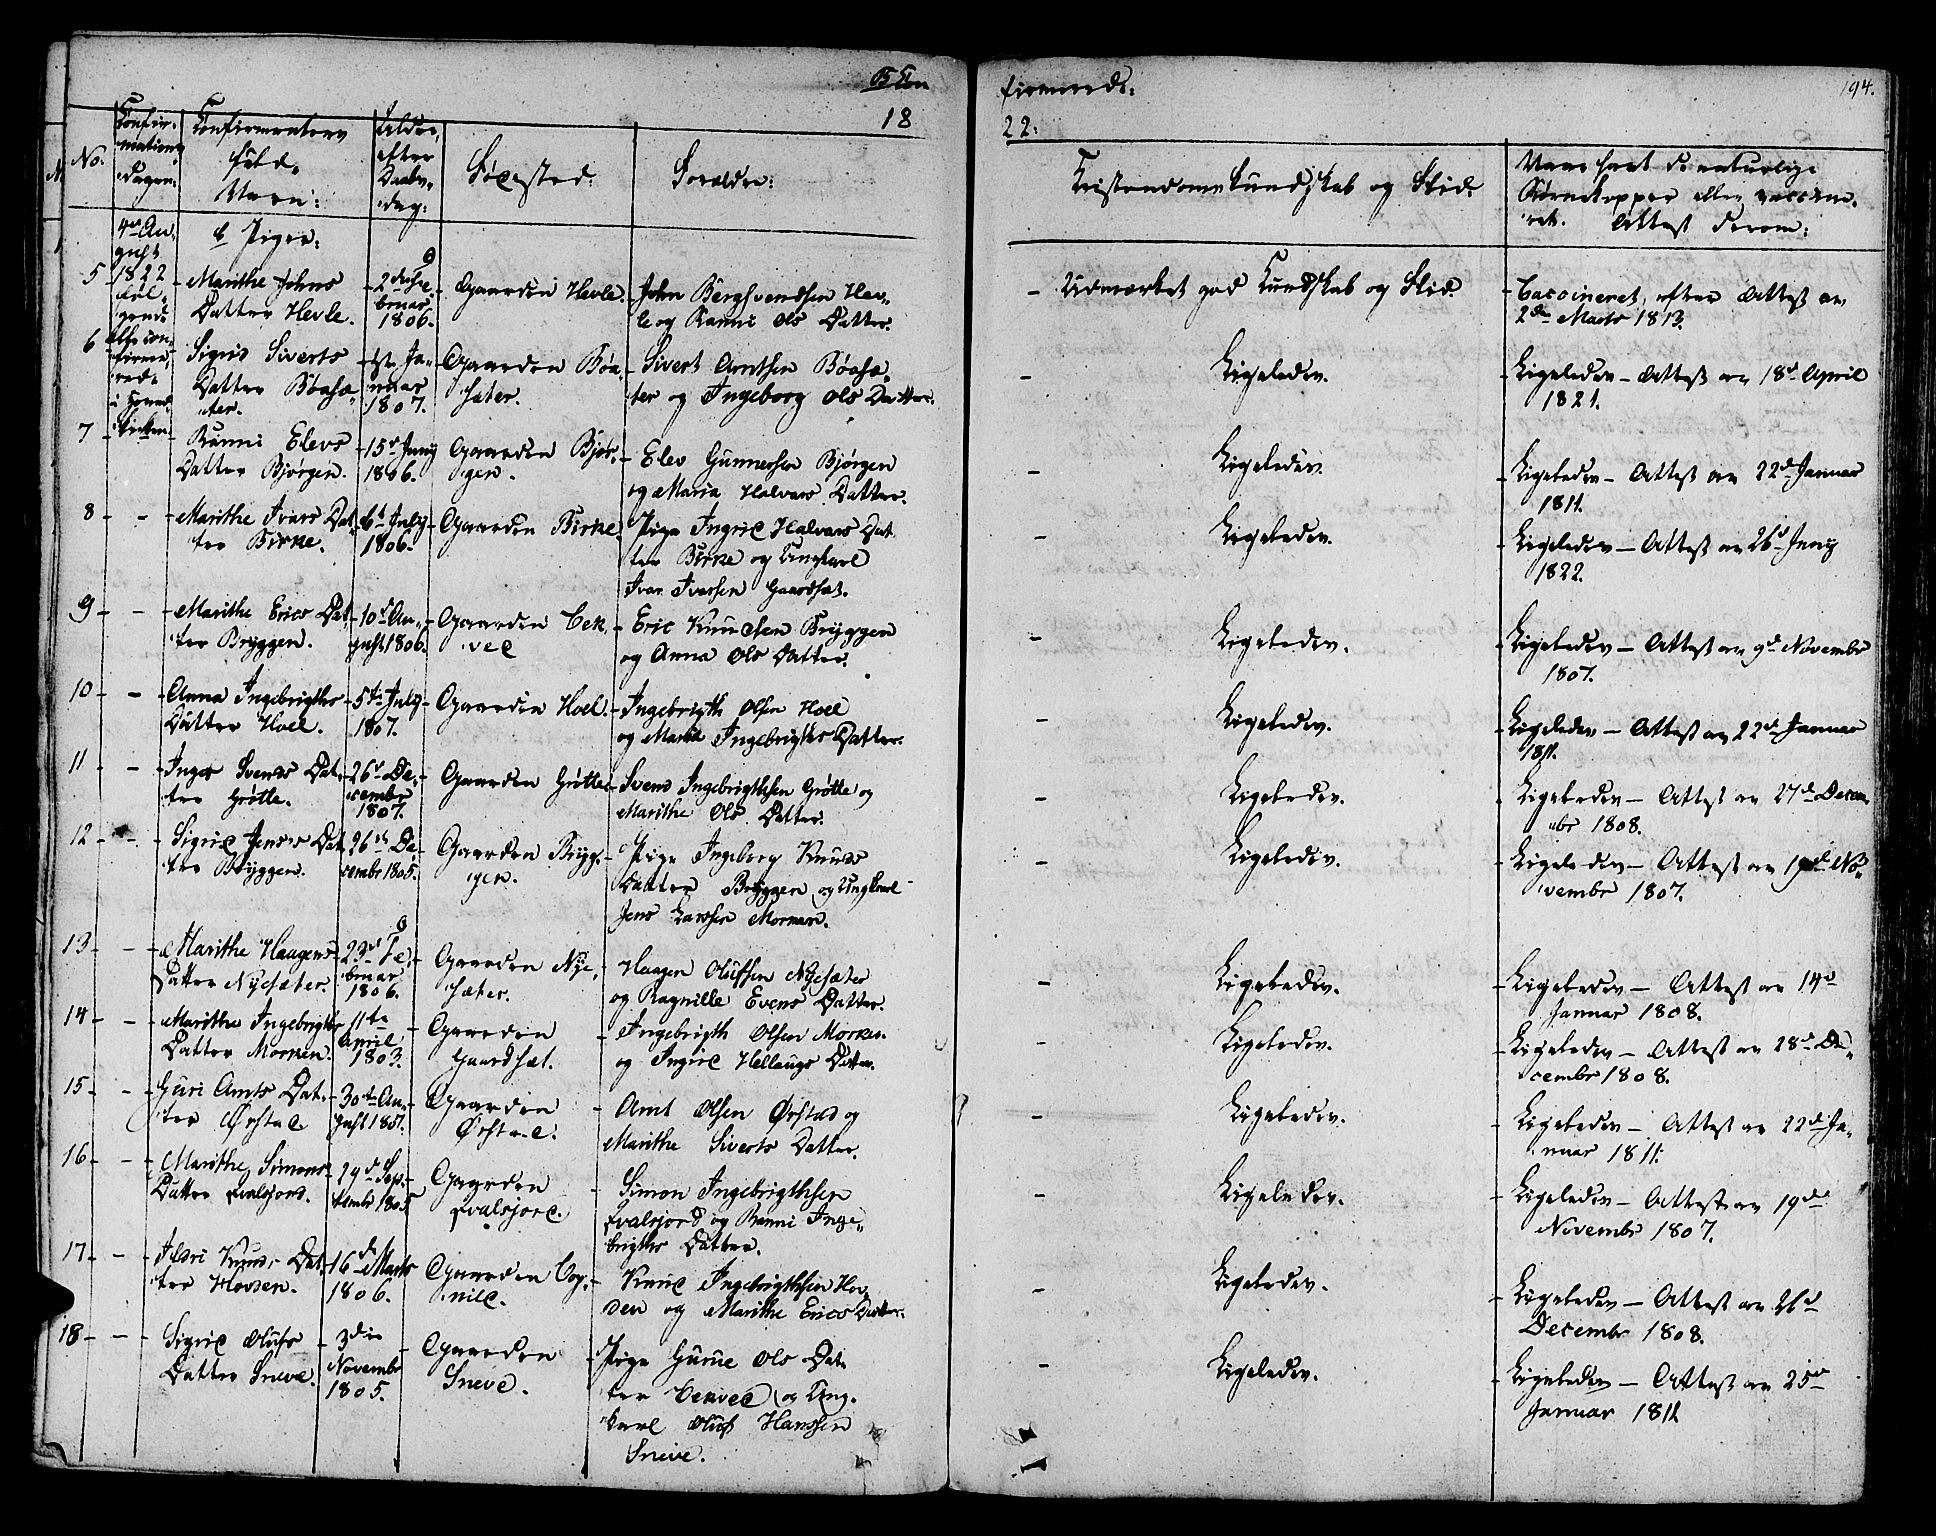 B Con
firmerede:
194.
18
22:
No.
Confir-
mations
Dagen:
Confirmantens
fulde
Navn:
Alder,
efter
Daabs-
dag:
Bopæsted:
Forældre:
Christendoms Kundskab og Flid.
Naar havt de naturlige
Børnekopper eller vaccine-
ret. Attest derom:
4de Au-
gust
1822
b Piger:
5
Marithe Johns
Datter Hevle.
2den Fe-
bruar
1806.
Gaarden Hevle.
John Bergsvendsen Hev-
le og Ranni Ols Datter.
Udmærket god Kundskab og Flid.
Vaccineret, efter Attest av
2den Marts 1813.
6
Sigrid Siverts
Datter Böasæ-
ter.
1ste Ja-
nuar
1807.
Gaarden Böa-
sæter.
Sivert Arntsen Böasæ-
ter og Ingeborg Ols Datter.
Ligeledes.
Ligeledes – Attest av 18d April
1821.
7
Ranni Elevs
Datter Bjørgen.
15d Juny
1806.
Gaarden Bjør-
gen.
Elev Gunnersen Bjørgen
og Maria Halvars Datter.
Ligeledes.
Ligeledes – Attest av 22d Januar
1811.
8 - -
Marithe Ivars Dat-
ter Birke.
6d July
1806.
Gaarden Birke.
Pige Ingrid Halvars Dat
ter Birke og Ungkarl
Ivar Ivarsen Gaardsæt.
Ligeledes.
Ligeledes – Attest av 26d Juny
1822.
9 - -
Marithe Erics Dat-
ter Bryggen.
10d Au-
gust 1806.
Gaarden Vek-
ved
Eric Knudsen Bryggen
og Anna Ols Datter.
Ligeledes.
Ligeledes – Attest av 9d Novembr
1807.
10 - -
Anna Ingebrigths
Datter Hoel.
5te July
1807.
Gaarden Hoel.
Ingebrigth Olsen Hoel
og Marit Ingebrigths Datter.
Ligeledes.
Ligeledes – Attest av 22d Januar
1811.
11 - -
Inger Svends Dat-
ter Grötte.
26d De-
cembr
1807.
Gaarden Grötte
Svend Ingebrigthsen Grötte og
Marithe Ols Datter.
Ligeledes.
Ligeledes – Attest av 27d Decem-
br 1808.
12 - -
Sigrid Jens Dat
ter Bryggen.
26d De-
cembr 1805.
Gaarden Bryg-
gen.
Pige Ingeberg Knuds
Datter Bryggen og Ungkarl
Jens Larssen Morken.
Ligeledes.
Ligeledes – Attest av 19d No-
vembr 1807.
13 - -
Marithe Haagens
Datter Nyesæter.
23d Fe-
bruar
1806.
Gaarden Nye-
sæter.
Haagen Oluffsen Nyesæter
og Ragnille Evens Datter.
Ligeledes.
Ligeledes – Attest av 14d
Januar 1808.
14 - -
Marithe Ingebrigths
Datter Morken.
11te
April
1803.
Gaarden
Gaardsæt.
Ingebrigth Olsen Morken
og Ingrid Hellaugs Datter.
Ligeledes.
Ligeledes – Attest av 28d De-
cembr 1808.
15 - -
Guri Arnts Dat-
ter Ørstad
30d Au-
gust 1807.
Gaarden
Ørstad.
Arnt Olsen Ørstad og
Marithe Siverts Datter.
Ligeledes.
Ligeledes – Attest av 22d Ja-
nuar 1811.
16 - -
Marithe Simons
Datter Qvalsjord.
29d Sep-
tembr 1805
Gaarden
Qvalsjord.
Simon Ingebrigthsen
Qvalsjord og Ranni Inge-
brigths Datter.
Ligeledes.
Ligeledes – Attest av 19de
Novembr 1807.
17 - -
Ildri Knuds Dat-
ter Hovden.
16d Marts
1806.
Gaarden Vog-
nild.
Knud Ingebrigthsen Hov-
den og Marithe Erics Datter.
Ligeledes.
Ligeledes – Attest av 26d
Decembr 1808.
18 - -
Sigrid Olufs
Datter Sneve.
3die
Novembr
1805.
Gaarden
Sneve.
Pige Gurue Ols Dat
ter Vekved og Ung-
karl Oluf Hanssen
Sneve.
Ligeledes.
Ligeledes – Attest av 25d
Januar 1811